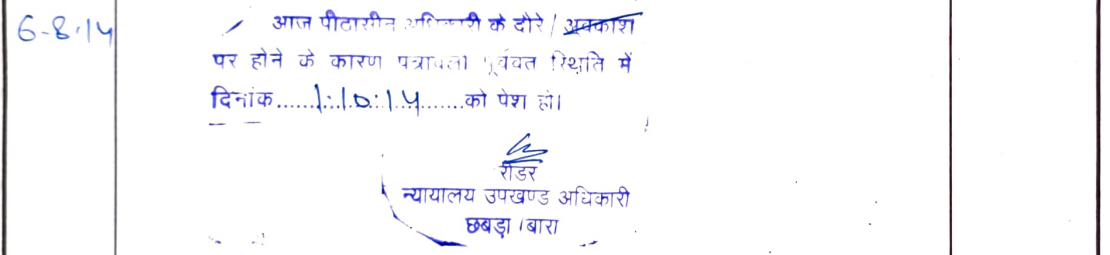 6-8-14
आज पीठासीन अधिकारी के दौरे / अवकाश
पर होने के कारण पत्रावली पूर्ववत स्थिति में
दिनांक......1.10.14.......को पेश हो।
रीडर
न्यायालय उपखण्ड अधिकारी
छबड़ा (बारा